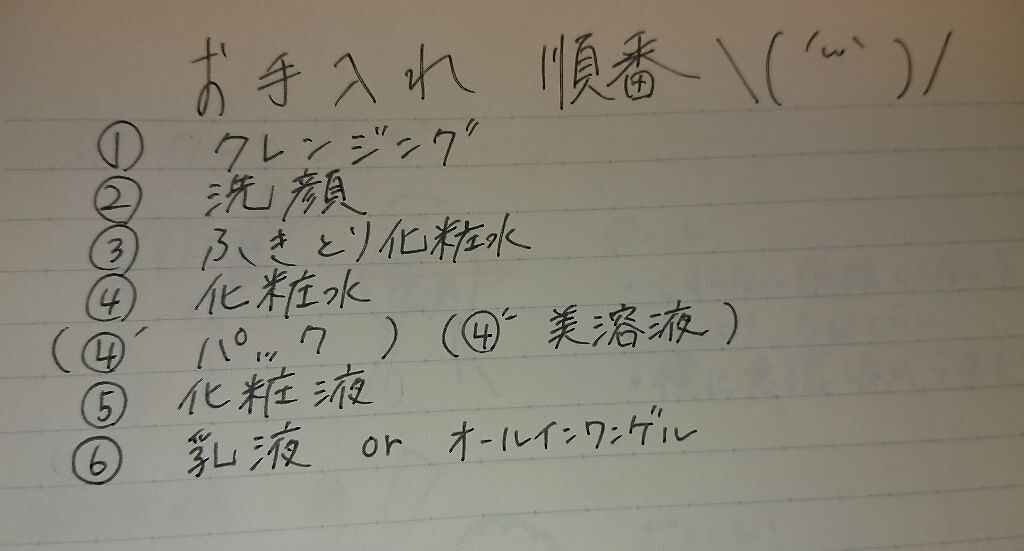 お手入れ 順番 \( ´ω` )/
① クレンジング
② 洗顔
③ ふきとり化粧水
④ 化粧水
(④´ パック ) (④´´ 美溶液)
⑤ 化粧液
⑥ 乳液 or オールインワンゲル